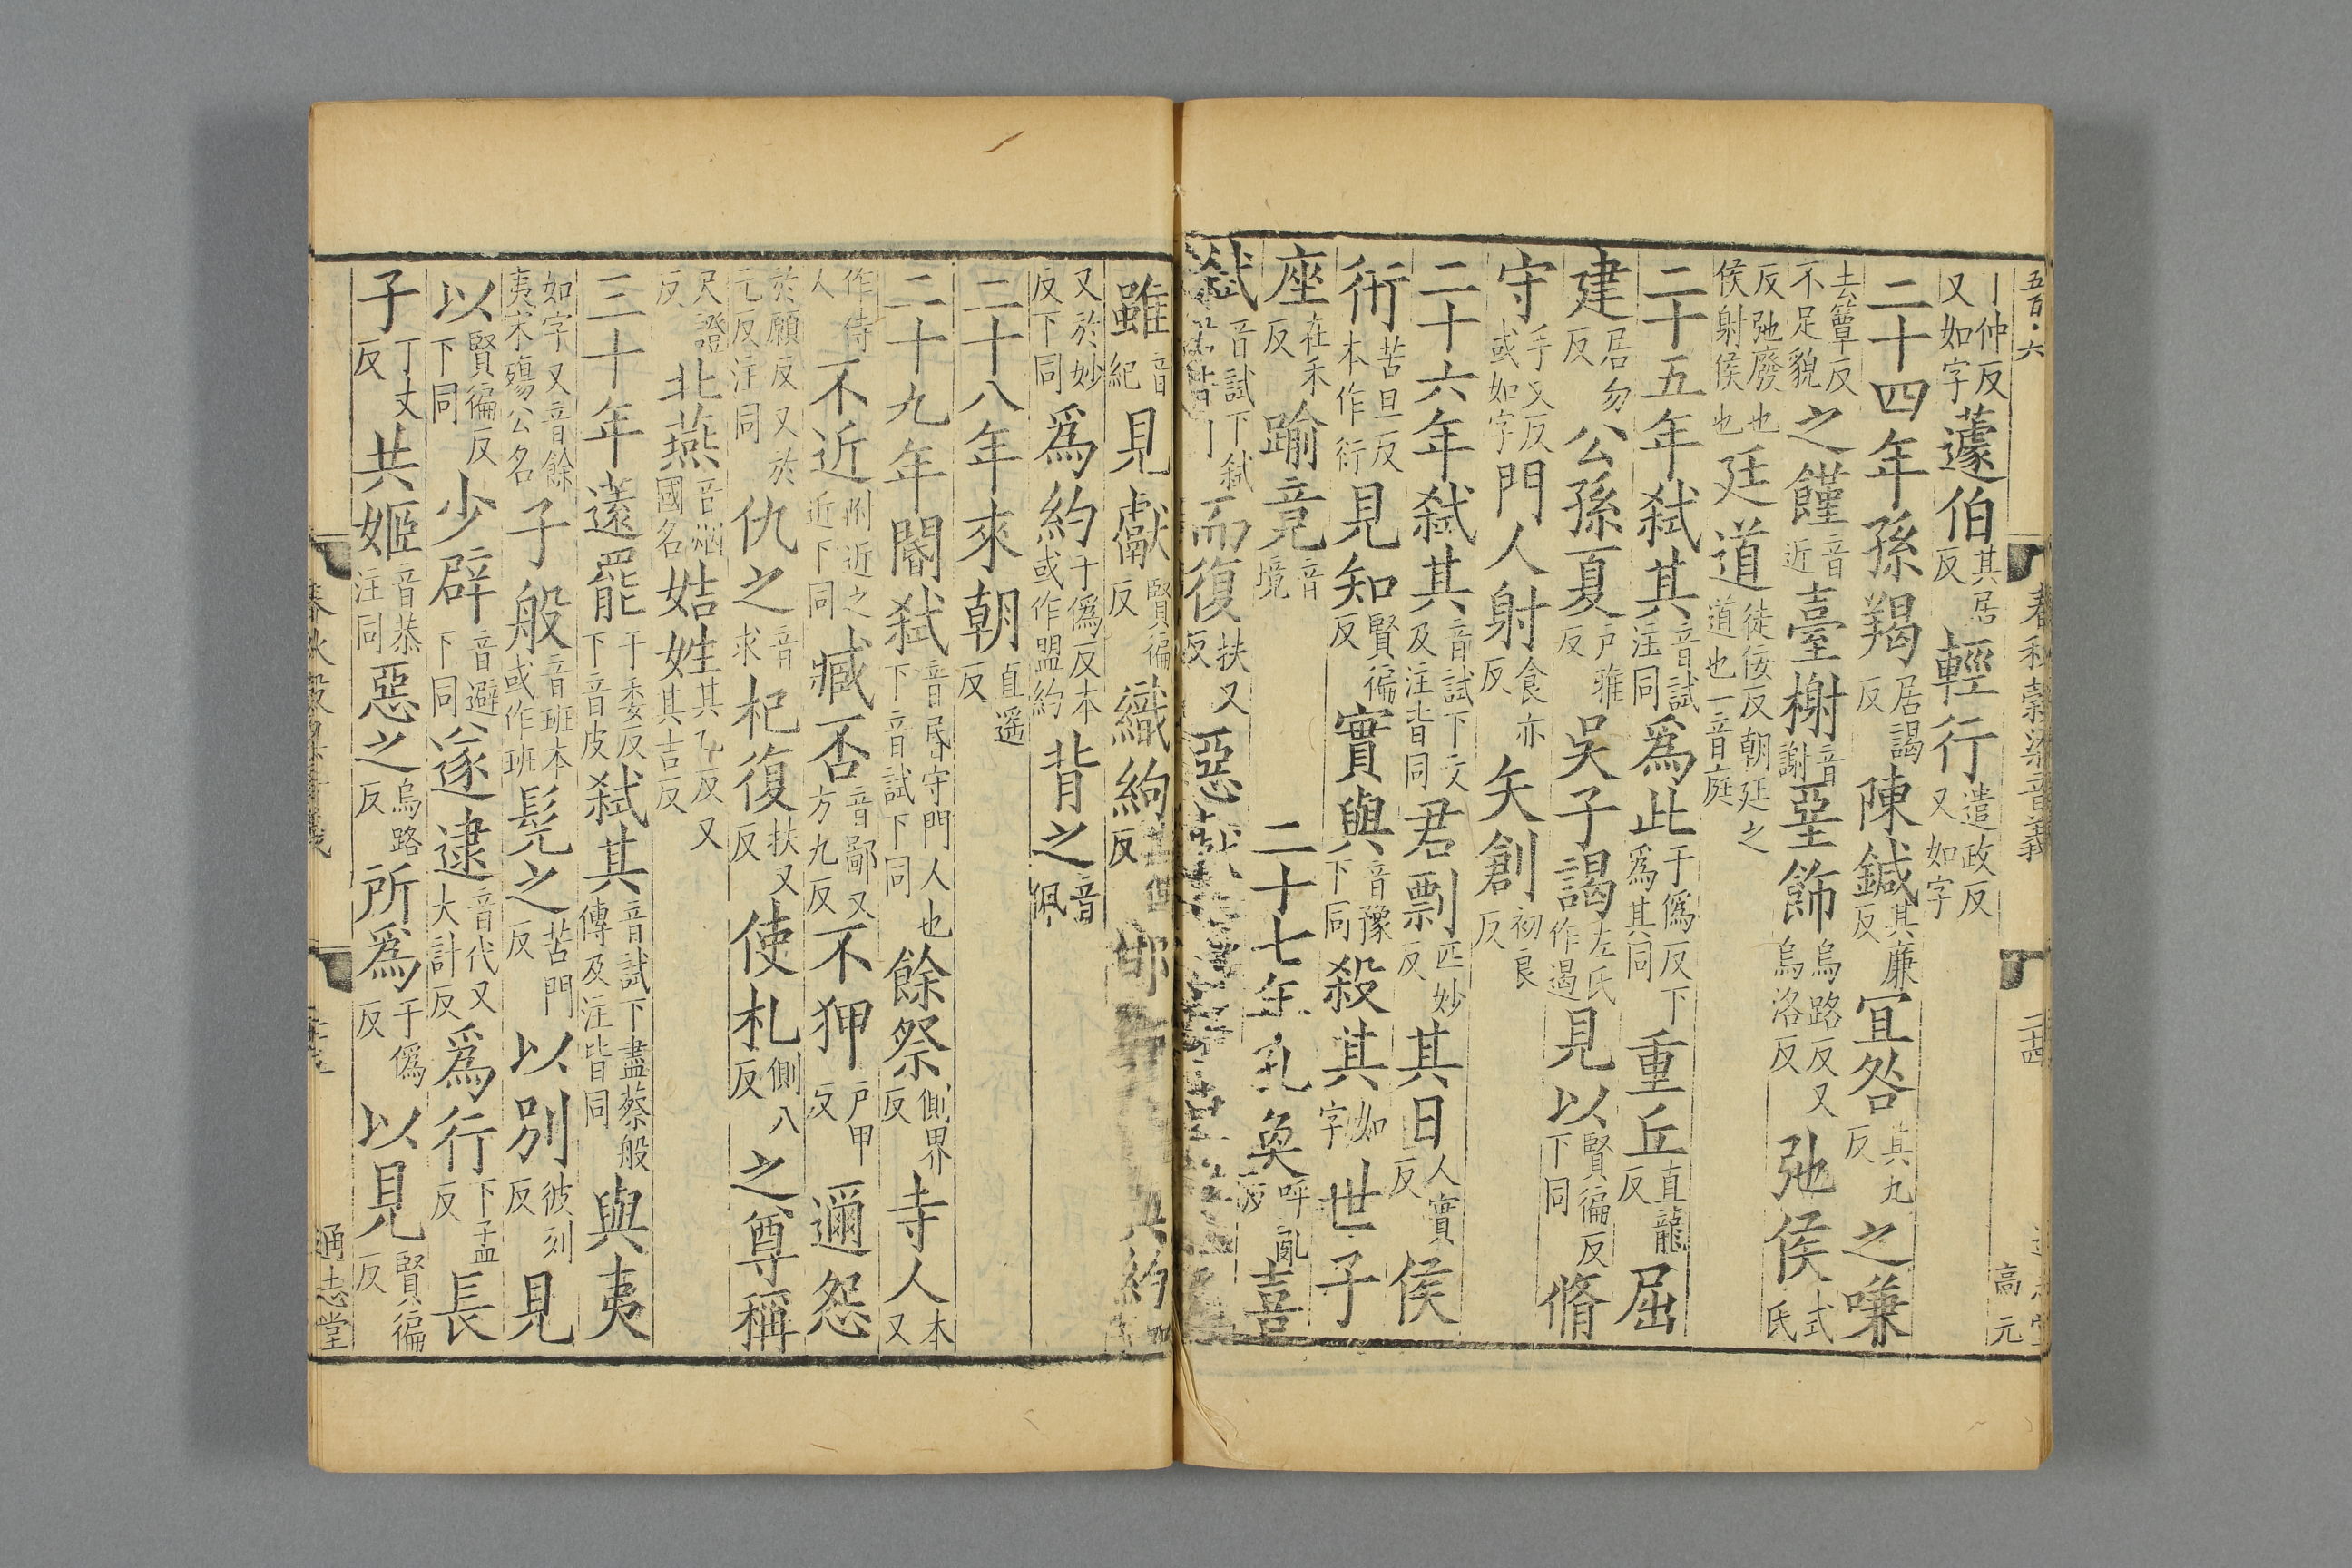 五百·六
春秋穀梁音義
二十四
高元
丨仲反又如字蘧伯其居反輕行遣政反又如字
二十四年孫羯居謁反陳鍼其廉反宜咎其九反之嗛
去簟反不足貌之饉音近臺榭音謝堊飾烏路反又烏洛反弛侯式氏
反弛廢也侯射侯也廷道徒佞反朝廷之道也一音庭
二十五年弑其音試注同爲此于僞反下爲其同重丘直龍反屈
建居勿反公孫夏戶雅反吳子謁左氏作遏見以賢徧反下同脩
守手又反或如字門人射食亦反矢創初良反
二十六年弑其音試下文及注皆同君剽匹妙反其日人實反侯
衎苦旦反本作衍見知賢徧反實與音豫下同殺其如字世子
座在禾反踰竟音境二十七年孔奐呼亂反喜
弑音試下弑丨而復扶又反惡
雖音紀見獻賢徧反織絢
又於妙反下同爲約于僞反本或作盟約背之音佩
二十八年來朝直遥反
二十九年閽弑音昬守門人也下音試下同餘祭側界反寺人本又
作侍人不近附近之近下同臧否音鄙又方九反不狎戶甲反邇怨
於願反又於元反注同仇之音求杞復扶又反使札側八反之尊稱
尺證反北燕音烟國名姞姓其乙反又其吉反
三十年薳罷于委反下音皮弑其音試下盡蔡般傳及注皆同與夷
如字又音餘夷宋殤公名子般音班本或作班髠之苦門反以别彼列反見
以賢徧反下同少辟音避下同遂逮音代又大計反爲行下孟反長
子丁丈反共姬音恭注同惡之烏路反所爲于僞反以見賢徧反
通志堂